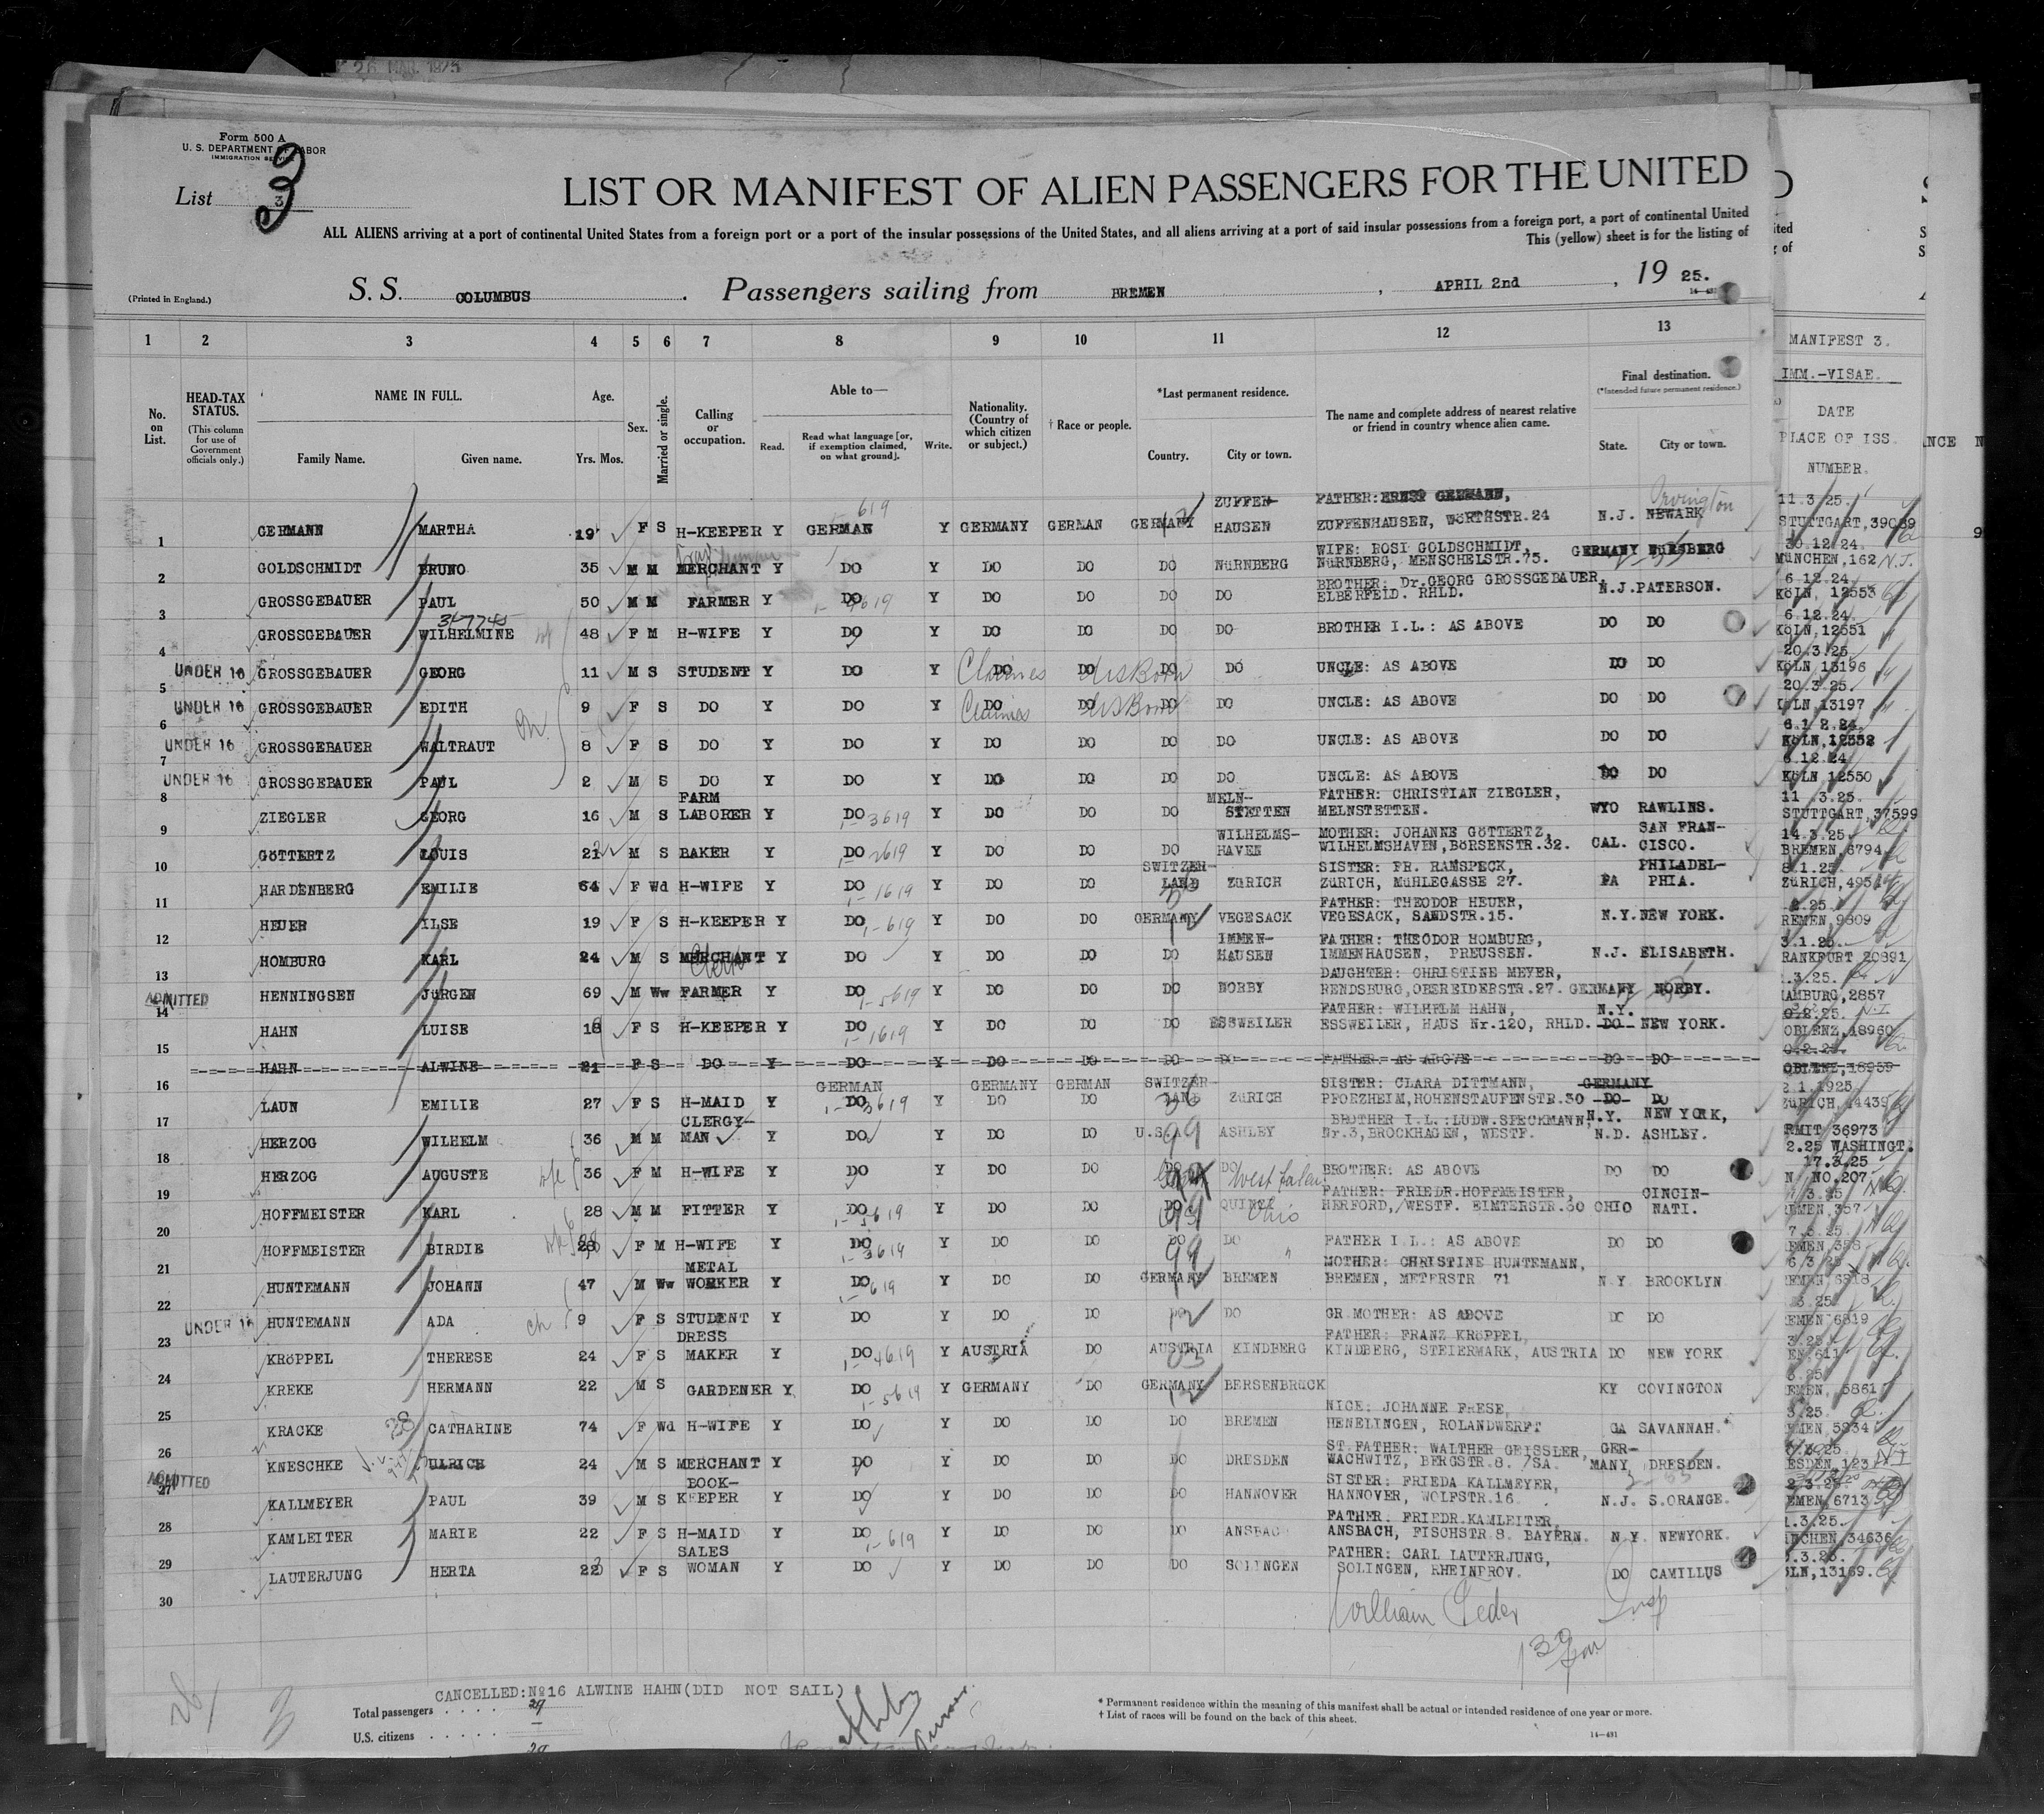 26 MAR. 1925
Form 500 A
U. S. DEPARTMENT OF LABOR
IMMIGRATION SERVICE
List 3
3
LIST OR MANIFEST OF ALIEN PASSENGERS FOR THE UNITED
ALL ALIENS arriving at a port of continental United States from a foreign port or a port of the insular possessions of the United States, and all aliens arriving at a port of said insular possessions from a foreign port, a port of continental United
This (yellow) sheet is for the listing of
(Printed in England.)
S. S. COLUMBUS . Passengers sailing from BREMEN , APRIL 2nd , 19 25.
1 2 3 4 5 6 7 8 9 10 11 12 13
MANIFEST 3.
IMM.-VISAE.
DATE
PLACE OF ISS.
NUMBER.
No. on List.
HEAD-TAX STATUS. (This column for use of Government officials only.)
NAME IN FULL.
Family Name. Given name.
Age. Yrs. Mos.
Sex.
Married or single.
Calling or occupation.
Able to—
Read. Read what language [or, if exemption claimed, on what ground]. Write.
Nationality. (Country of which citizen or subject.)
† Race or people.
*Last permanent residence.
Country. City or town.
The name and complete address of nearest relative or friend in country whence alien came.
Final destination. (*Intended future permanent residence.)
State. City or town.
619 ZUFFEN- FATHER: ERNST GERMANN, Irvington 11.3.25.
1 GERMANN MARTHA 19 F S H-KEEPER Y GERMAN Y GERMANY GERMAN GERMANY HAUSEN ZUFFENHAUSEN, WÖRTHSTR.24 N.J. NEWARK STUTTGART, 39089
WIFE: ROSI GOLDSCHMIDT, 30.12.24.
2 GOLDSCHMIDT BRUNO 35 M M MERCHANT Y DO Y DO DO DO NÜRNBERG NÜRNBERG, MENSCHELSTR.75. GERMANY NÜRNBERG MÜNCHEN,162 N.I.
BROTHER: Dr.GEORG GROSSGEBAUER, 6.12.24.
3 GROSSGEBAUER PAUL 50 M M FARMER Y DO Y DO DO DO DO ELBERFELD. RHLD. N.J.PATERSON. KÖLN, 12553
6.12.24.
4 GROSSGEBAUER WILHELMINE 48 F M H-WIFE Y DO Y DO DO DO DO BROTHER I.L.: AS ABOVE DO DO KÖLN,12551
20.3.25.
5 UNDER 16 GROSSGEBAUER GEORG 11 M S STUDENT Y DO Y DO DO DO DO UNCLE: AS ABOVE DO DO KÖLN, 13196
Claimes US Born
20.3.25.
6 UNDER 16 GROSSGEBAUER EDITH 9 F S DO Y DO Y DO DO DO DO UNCLE: AS ABOVE DO DO KÖLN 13197
Claimes US Born
6.12.24.
7 UNDER 16 GROSSGEBAUER WALTRAUT 8 F S DO Y DO Y DO DO DO DO UNCLE: AS ABOVE DO DO KÖLN,12552
6.12.24.
8 UNDER 16 GROSSGEBAUER PAUL 2 M S DO Y DO Y DO DO DO DO UNCLE: AS ABOVE DO DO KÖLN 12550
FARM MELN- FATHER: CHRISTIAN ZIEGLER, 11.3.25.
9 ZIEGLER GEORG 16 M S LABORER Y DO Y DO DO DO STETTEN MELNSTETTEN. WYO RAWLINS. STUTTGART,37599
WILHELMS- MOTHER: JOHANNE GÖTTERTZ, SAN FRAN- 14.3.25.
10 GÖTTERTZ LOUIS 21 M S BAKER Y DO Y DO DO DO HAVEN WILHELMSHAVEN,BÖRSENSTR.32. CAL. CISCO. BREMEN,6794
SWITZER- SISTER: FR. RAMSPECK, PHILADEL- 8.1.25.
11 HARDENBERG EMILIE 64 F Wd H-WIFE Y DO Y DO DO LAND ZÜRICH ZÜRICH, MÜHLEGASSE 27. PA PHIA. ZÜRICH,
FATHER: THEODOR HEUER,
12 HEUER ILSE 19 F S H-KEEPER Y DO Y DO DO GERMANY VEGESACK VEGESACK, SANDSTR.15. N.Y.NEW YORK. REMEN,9809
IMMEN- FATHER: THEODOR HOMBURG, 3.1.25.
13 HOMBURG KARL 24 M S MERCHANT Y DO Y DO DO DO HAUSEN IMMENHAUSEN, PREUSSEN. N.J. ELISABETH. RANKFURT 20891
Clerk
DAUGHTER: CHRISTINE MEYER, .3.25.
14 ADMITTED HENNINGSEN JÜRGEN 69 M Ww FARMER Y DO Y DO DO DO NORBY RENDSBURG,OBEREIDERSTR.27. GERMANY NORBY. HAMBURG,2857
FATHER: WILHELM HAHN, N.Y.
15 HAHN LUISE 18 F S H-KEEPER Y DO Y DO DO DO ESSWEILER ESSWEILER, HAUS Nr.120, RHLD. DO NEW YORK. OBLENZ,18960
16 HAHN ALWINE 21 F S DO Y DO Y DO DO DO DO FATHER: AS ABOVE DO DO OBLENZ,18959
GERMAN GERMANY GERMAN SWITZER- SISTER: CLARA DITTMANN, GERMANY 2.1.1925
17 LAUN EMILIE 27 F S H-MAID Y DO Y DO DO LAND ZÜRICH PFORZHEIM,HOHENSTAUFENSTR.30 DO DO ZÜRICH,14439
CLERGY- BROTHER I.L.:LUDW.SPECKMANN, N.Y. NEW YORK, RMIT 36973
18 HERZOG WILHELM 36 M M MAN Y DO Y DO DO U.S.A. ASHLEY Nr.3,BROCKHAGEN, WESTF. N.D. ASHLEY. 2.25 WASHINGT.
17.3.25
19 HERZOG AUGUSTE 36 F M H-WIFE Y DO Y DO DO DO DO Westfalen BROTHER: AS ABOVE DO DO NO.207
FATHER: FRIEDR.HOFFMEISTER, CINCIN-
20 HOFFMEISTER KARL 28 M M FITTER Y DO Y DO DO DO Ohio HERFORD,/WESTF. EIMTERSTR.30 OHIO NATI. REMEN,357
21 HOFFMEISTER BIRDIE 28 F M H-WIFE Y DO Y DO DO DO DO FATHER I.L.: AS ABOVE DO DO
METAL MOTHER: CHRISTINE HUNTEMANN,
22 HUNTEMANN JOHANN 47 M Ww WORKER Y DO Y DO DO GERMANY BREMEN BREMEN, METERSTR 71 N Y BROOKLYN
23 UNDER 16 HUNTEMANN ADA 9 F S STUDENT Y DO Y DO DO DO DO GR.MOTHER: AS ABOVE DO DO EMEN 6819
DRESS FATHER: FRANZ KRÖPPEL,
24 KRÖPPEL THERESE 24 F S MAKER Y DO Y AUSTRIA DO AUSTRIA KINDBERG KINDBERG, STEIERMARK, AUSTRIA DO NEW YORK
25 KREKE HERMANN 22 M S GARDENER Y DO Y GERMANY DO GERMANY BERSENBRÜCK KY COVINGTON EMEN, 5861
NICE: JOHANNE FRESE,
26 KRACKE CATHARINE 74 F Wd H-WIFE Y DO Y DO DO DO BREMEN HEMELINGEN, ROLANDWERFT GA SAVANNAH. EMEN 5934
ST.FATHER: WALTHER GEISSLER, GER-
27 ADMITTED KNESCHKE ULRICH 24 M S MERCHANT Y DO Y DO DO DO DRESDEN WACHWITZ, BERGSTR.8. /SA. MANY DRESDEN. ESDEN,123
BOOK- SISTER: FRIEDA KALLMEYER,
28 KALLMEYER PAUL 39 M S KEEPER Y DO Y DO DO DO HANNOVER HANNOVER, WOLFSTR.16 N.J. S.ORANGE. EMEN,6713
FATHER: FRIEDR.KAMLEITER,
29 KAMLEITER MARIE 22 F S H-MAID Y DO Y DO DO DO ANSBACH ANSBACH, FISCHSTR 8. BAYERN. N.Y. NEWYORK. NCHEN,34636
SALES FATHER: CARL LAUTERJUNG,
30 LAUTERJUNG HERTA 22 F S WOMAN Y DO Y DO DO DO SOLINGEN SOLINGEN, RHEINPROV. DO CAMILLUS ÖLN,13169.
William
Insp
CANCELLED:No16 ALWINE HAHN(DID NOT SAIL)
Total passengers . . . . 29
U.S. citizens . . . . . —
* Permanent residence within the meaning of this manifest shall be actual or intended residence of one year or more.
† List of races will be found on the back of this sheet.
14—431